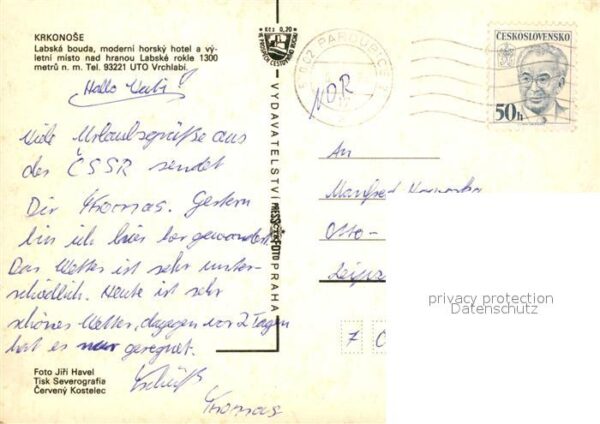 KRKONOŠE
Labská bouda, moderní horský hotel a vý-
letní místo nad hranou Labské rokle 1300
metrů n. m. Tel. 93221 UTO Vrchlabí.
Hallo
Viele Urlaubsgrüße aus
der ČSSR sendet
Dir Thomas. Gestern
bin ich hier her gewandert.
Das Wetter ist sehr unter-
schiedlich. Heute ist sehr
schönes Wetter, dagegen vor 2 Tagen
hat es nur geregnet.
Tschüß
Thomas
Foto Jiří Havel
Tisk Severografia
Červený Kostelec
Kčs 0,20
VYDAVATELSTVÍ PRESSFOTO PRAHA
PARDUBICE
NDR
ČESKOSLOVENSKO
50h
An
Manfred
Otto-
Leipz
7
privacy protection
Datenschutz